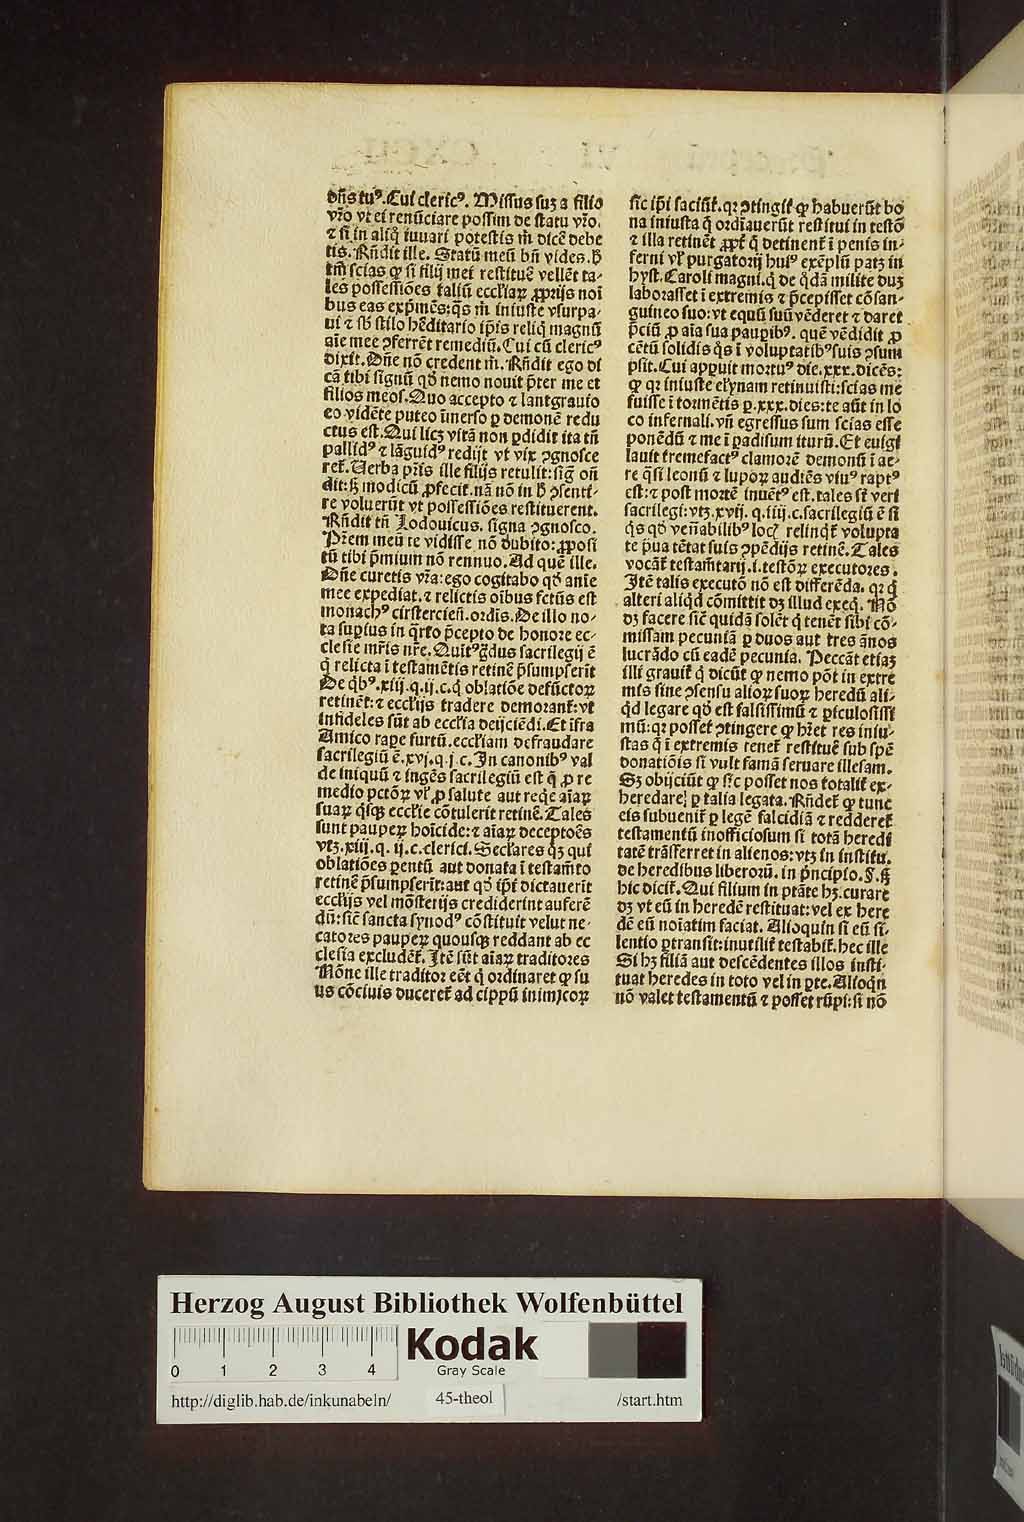 dn̄s tuꝰ. Cui clericꝰ. Missus suꝫ a filio
vr̄o vt ei renūciare possim de statu vr̄o.
⁊ si in aliq̄ iuuari potestis m̄ dicē debe
tis. Rn̄dit ille. Statū meū bn̄ vides. h̄
tm̄ scias ꝙ si filij mei restituē vellēt ta-
les possessiōes taliū eccl'iaꝝ ꝓprijs noī
bus eas exp̄mēs: q̄s m̄ iniuste vsurpa-
ui ⁊ sb̄ stilo hēditario ip̄is reliq̄ magnū
aīe mee ꝯferrēt remediū. Cui cū clericꝰ
dixit. Dn̄e nō credent m̄. Rn̄dit ego di
cā tibi signū qd̄ nemo nouit p̄ter me et
filios meos. Quo accepto ⁊ lantgrauio
eo vidēte puteo īmerso ꝑ demonē redu
ctus est. Qui licꝫ vitā non ꝑdidit ita tn̄
pallidꝰ ⁊ lāguidꝰ redijt vt vix ꝯgnosce
ret̄. Verba pr̄is ille filijs retulit: siḡ on̄
dit: sꝫ modicū ꝓfecit. nā nō in h̄ ꝯsenti-
re voluerūt vt possessiōes restituerent.
Rn̄dit tn̄ Lodouicus. signa ꝯgnosco.
Pr̄em meū te vidisse nō dubito: ꝓposi
tū tibi p̄mium nō rennuo. Ad quē ille.
Dn̄e curetis vr̄a: ego cogitabo qd̄ anīe
mee expediat. ⁊ relictis oībus fctūs est
monachꝰ cirstercien̄. ordīs. De illo no-
ta supius in q̄rto p̄cepto de honore ec-
clesie mr̄is nr̄e. Quītꝰ g̈dus sacrilegij ē
q̄ relicta ī testamētis retinē p̄sumpserīt
De qb̄ꝰ. xiij. q. ij. c. q̄ oblatiōe defūctoꝝ
retinēt: ⁊ eccl'ijs tradere demorant̄: vt
infideles sūt ab eccl'ia deijciēdi. Et īfra
Amico rape furtū. eccl'iam defraudare
sacrilegiū ē. xvj. q. j. c. In canonibꝰ val
de iniquū ⁊ ingēs sacrilegiū est q̄ ꝓ re
medio pctōꝝ vl' ꝓ salute aut reqe aīaꝝ
suaꝝ q̄sqꝫ eccl'ie cōtulerit retinē. Tales
sunt paupeꝝ hoīcide: ⁊ aīaꝝ deceptoēs
vtꝫ. xiij. q. ij. c. clerici. Secl'ares qꝫ qui
oblatiōes ꝑentū aut donata ī testam̄to
retinē p̄sumpserīt: aut qd̄ ip̄i dictauerīt
eccl'ijs vel mōsterijs crediderint auferē
dū: siē sancta synodꝰ cōstituit velut ne-
catores paupeꝝ quousqꝫ reddant ab ec
clesia excludēt̄. Itē sūt aīaꝝ traditores
Nōne ille traditor eēt q̄ ordinaret ꝙ su
us cōciuis duceret̄ ad cippū inimicoꝝ
sic ip̄i faciūt̄. qꝛ ꝯtingit̄ ꝙ habuerūt bo
na iniusta q̄ ordīauerūt restitui in testō
⁊ illa retinēt ꝓpt̄ q̄ detinent̄ ī penis in-
ferni vl' purgatorij huiꝰ exēplū patꝫ in
hyst. Caroli magni. q̄ de q̄dā milite duꝫ
laborasset ī extremis ⁊ p̄cepisset cōsan-
guineo suo: vt equū suū vēderet ⁊ daret
p̄ciū ꝓ aīa sua paupibꝰ. quē vēdidit ꝓ
cētū solidis q̄s ī voluptatibꝰ suis ꝯsum
psit. Cui apꝑuit mortuꝰ die. xxx. dicēs:
ꝙ qꝛ iniuste el'ynam retinuisti: scias me
fuisse ī tormētis ꝑ. xxx. dies: te aūt in lo
co infernali. vn̄ egressus sum scias esse
ponēdū ⁊ me ī ꝑadisum iturū. Et euigi
lauit tremefactꝰ clamorē demonū ī ae-
re q̄si leonū ⁊ lupoꝝ audiēs viuꝰ raptꝰ
est: ⁊ post mortē inuētꝰ est. tales sūt veri
sacrilegi: vtꝫ. xvij. q. iiij. c. sacrilegiū ē si
q̄s qd̄ ven̄abilibꝰ locꝭ relinqt̄ volupta
te p̄ua tētat suis ꝯpēdijs retinē. Tales
vocāt̄ testam̄tarij. i. testōꝝ executores.
Itē talis executō nō est differēda. qꝛ q̄
alteri aliqd̄ cōmittit dꝫ illud exeq̄. Nō
dꝫ facere siē quidā solēt q̄ tenēt sibi cō-
missam pecuniā ꝑ duos aut tres ānos
lucrādo cū eadē pecunia. Peccāt etiaꝫ
illi grauit̄ q̄ dicūt ꝙ nemo pōt in extre
mis sine ꝯsensu alioꝝ suoꝝ heredū ali-
qd̄ legare qd̄ est falsissimū ⁊ ꝑiculosissi
mū: qꝛ posset̄ ꝯtingere ꝙ hr̄et res iniu-
stas q̄ ī extremis tenet̄ restituē sub spē
donatiōis si vult famā seruare illesam.
Sꝫ obijciūt ꝙ sic posset nos totalit̄ ex-
heredare ꝑ talia legata. Rn̄det̄ ꝙ tunc
eis subuenit̄ ꝑ legē falcidiā ⁊ redderet̄
testamentū inofficiosum si totā heredi
tatē trāsferret in alienos: vtꝫ in institu.
de heredibus liberorū. in p̄ncipio. §. sꝫ
hic dicit̄. Qui filium in ptāte hꝫ. curare
dꝫ vt eū in heredē restituat: vel ex here
dē eū noīatim faciat. Alioquin si eū si-
lentio ꝑtransit: inutilit̄ testabit̄. hec ille
Si hꝫ filiā aut descēdentes illos insti-
tuat heredes in toto vel in ꝑte. Alioqn̄
nō valet testamentū ⁊ posset rūpi: si nō
Herzog August Bibliothek Wolfenbüttel
0 1 2 3 4
Kodak
Gray Scale
http://diglib.hab.de/inkunabeln/ 45-theol /start.htm